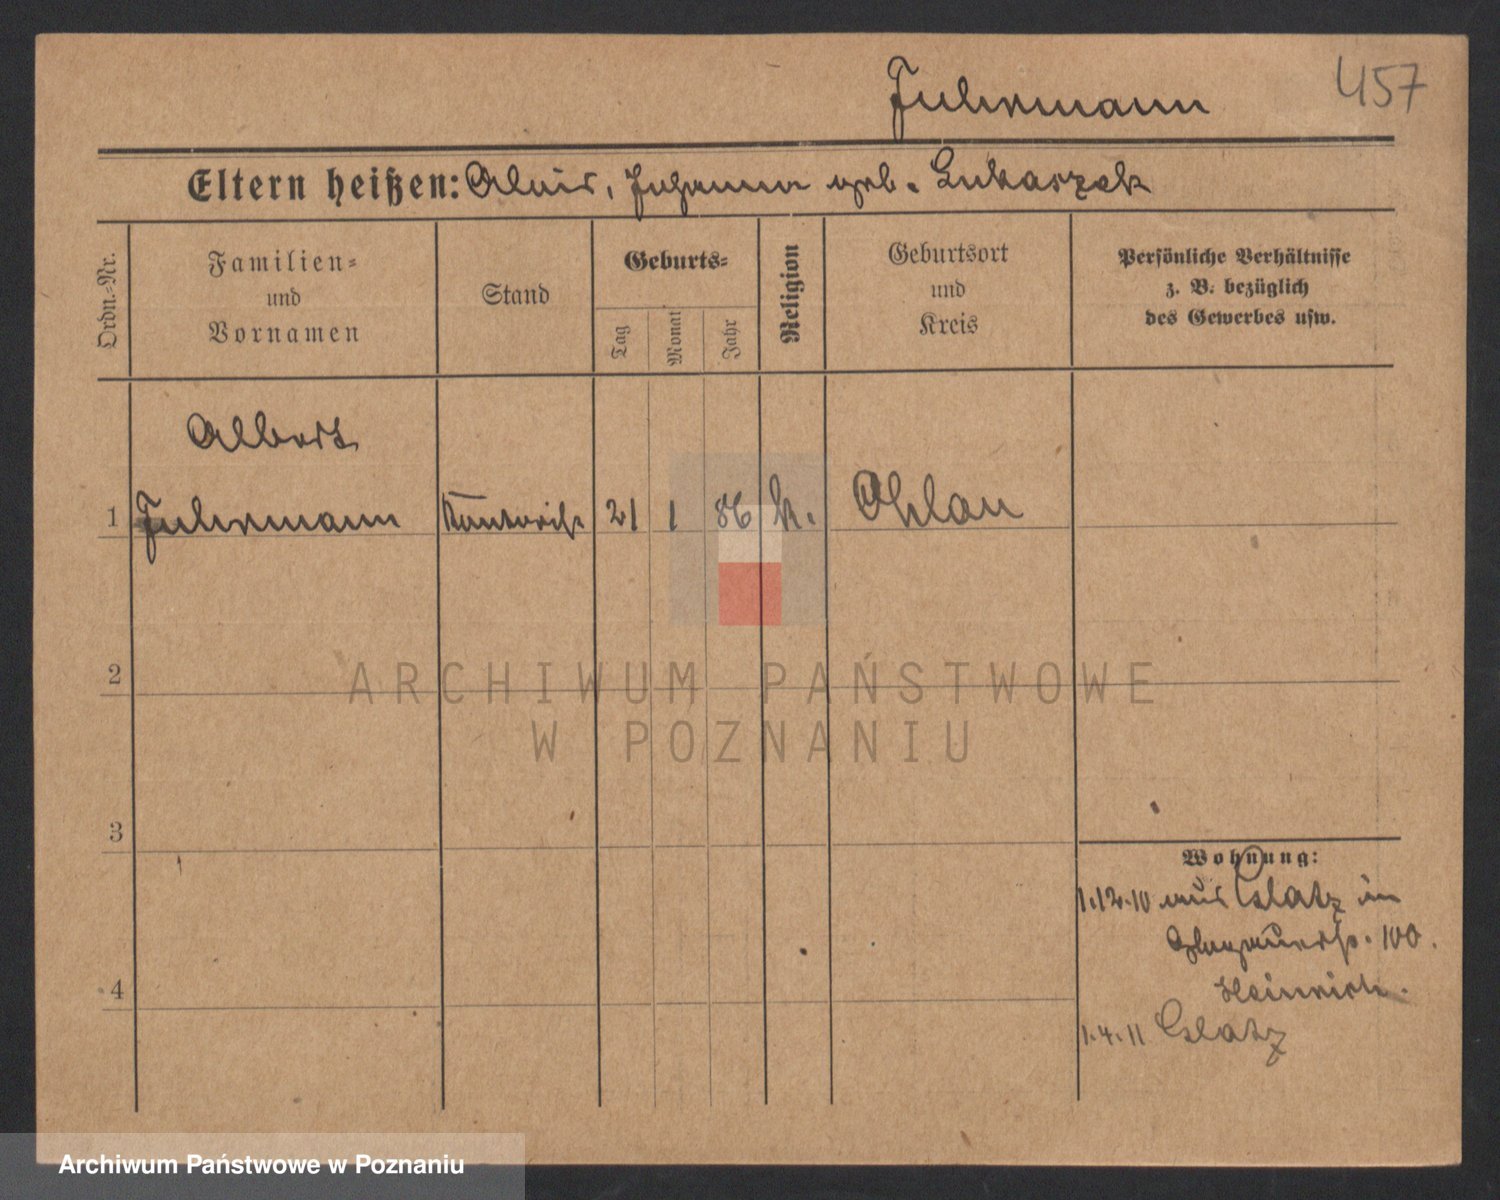 Fuhrmann
457
Eltern heißen: Alois, Johanna geb. Lukaszek
Ordn.-Nr.
Familien-
und
Vornamen
Stand
Geburts-
Tag
Monat
Jahr
Religion
Geburtsort
und
Kreis
Persönliche Verhältnisse
z. B. bezüglich
des Gewerbes usw.
Albert
1 Fuhrmann 21 1 86 k. Ohlau
2
ARCHIWUM PAŃSTWOWE
W POZNANIU
3
Wohnung:
1.12.10 aus Glatz in
100.
Heinrich.
4
1.4.11 Glatz
Archiwum Państwowe w Poznaniu